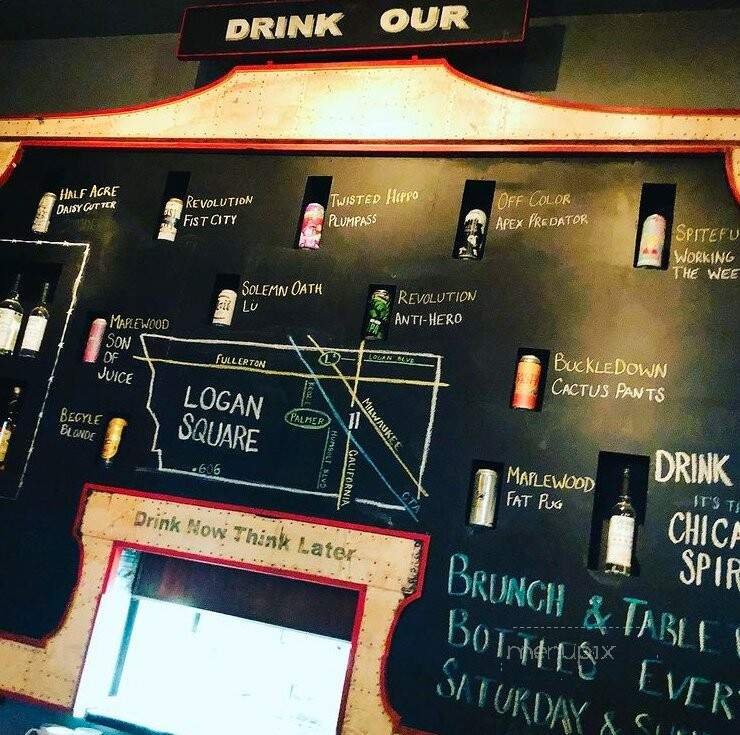 DRINK OUR
HALF ACRE
DAISY CUTTER
REVOLUTION
FIST CITY
TWISTED HIPPO
PLUMPASS
OFF COLOR
APEX PREDATOR
SPITEFU
WORKING
THE WEE
SOLEMN OATH
LÜ
REVOLUTION
ANTI-HERO
MAPLEWOOD
SON
OF
JUICE
BEGYLE
BLONDE
FULLERTON
LOGAN BLVD
LOGAN
SQUARE
PALMER
MILWAUKEE
HUMBOLT BLVD
CALIFORNIA
CTA
606
BUCKLEDOWN
CACTUS PANTS
MAPLEWOOD
FAT PUG
DRINK
IT'S T
CHICA
SPIR
Drink Now Think Later
BRUNCH & TABLE
BOTTLES EVER
SATURDAY & SU
menupix